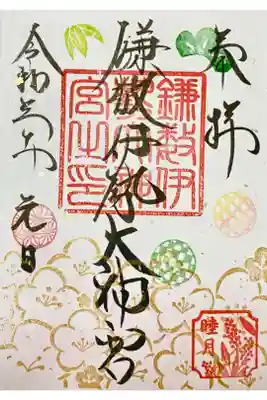 奉拝
鎌数伊勢大神宮
鎌数伊
勢大神
宮之印
令和
年
元日
睦月